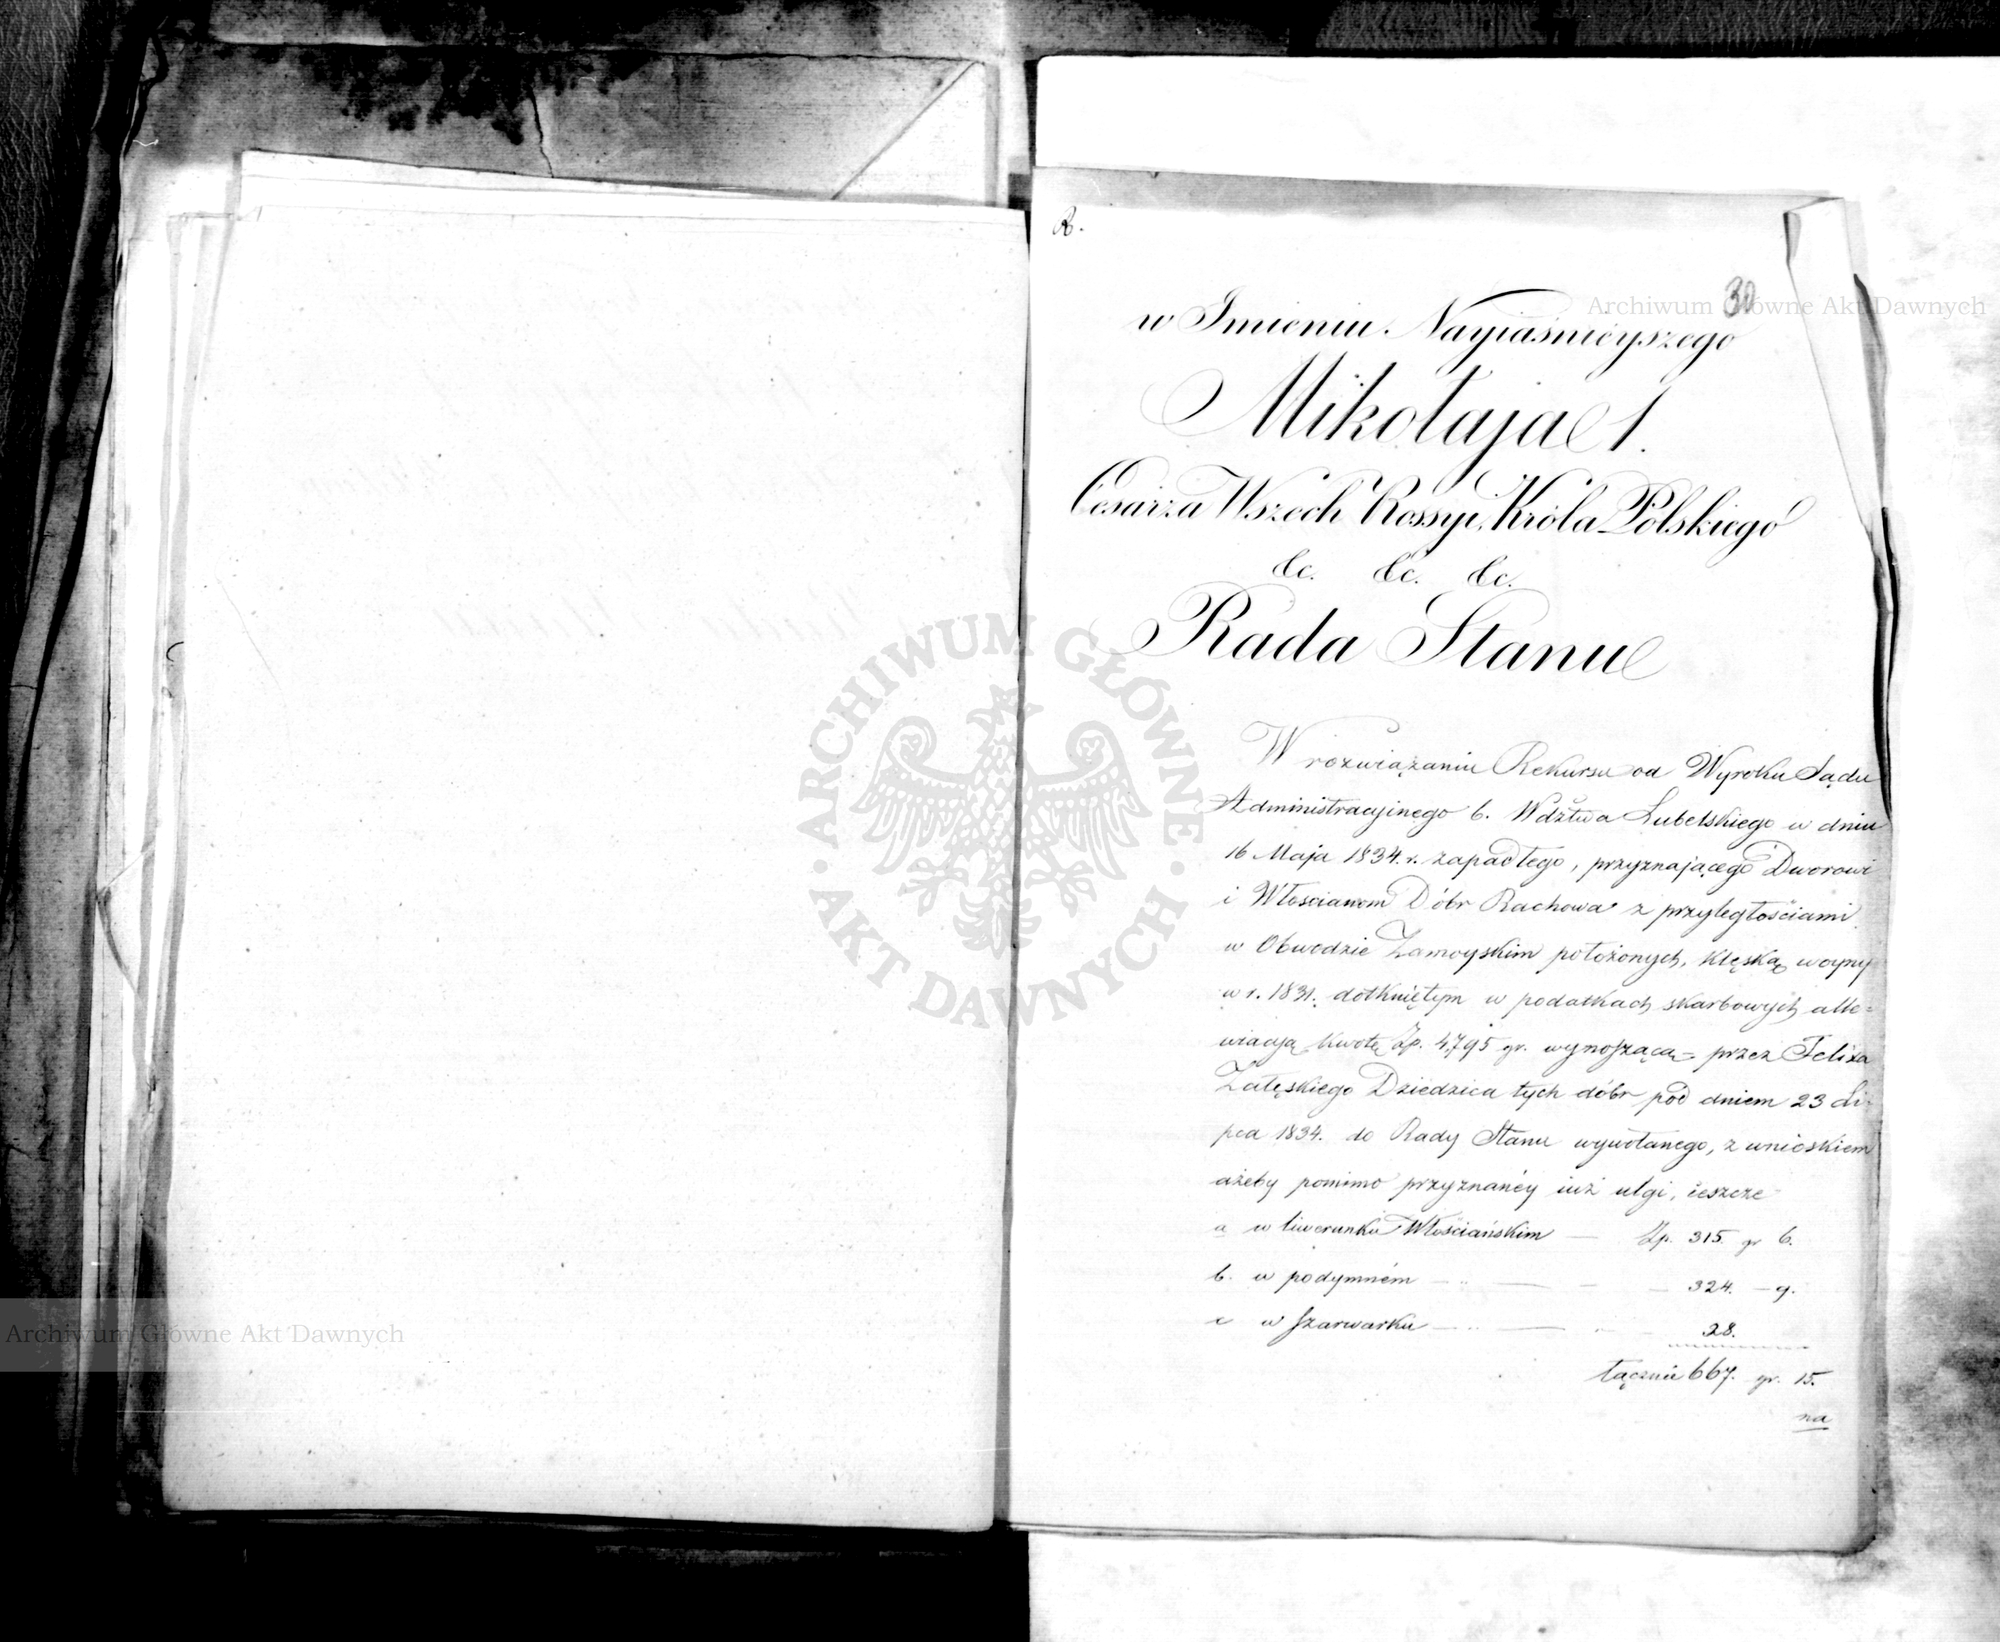 R.
30
w Imieniu Nayiaśnieyszego
Mikołaja 1.
Cesarza Wszech Rossyi, Króla Polskiego
&c. &c. &c.
Rada Stanu
W rozwiązaniu Rekursu od Wyroku Sądu
Administracyinego b. Wdztwa Lubelskiego w dniu
16 Maja 1834. r. zapadłego, przyznającego Dworowi
i Włościanom Dóbr Rachowa z przyległościami
w Obwodzie Zamoyskim położonych, klęską woyny
w r. 1831. dotkniętym w podatkach skarbowych alle=
wiacyą kwotę Zp. 4,795 gr. wynoszącą – przez Felixa
Załęskiego Dziedzica tych dóbr pod dniem 23 Li-
pca 1834. do Rady Stanu wywołanego, z wnioskiem
ażeby pomimo przyznanéy iuż ulgi, ieszcze
a w liwerunku Włościańskim — Zp. 315. gr 6.
b. w podymném — — — 324. — 9.
c w szarwarku — — — 28.
łącznie 667. gr. 15.
na
Archiwum Główne Akt Dawnych
Archiwum Główne Akt Dawnych
ARCHIWUM GŁÓWNE · AKT DAWNYCH ·